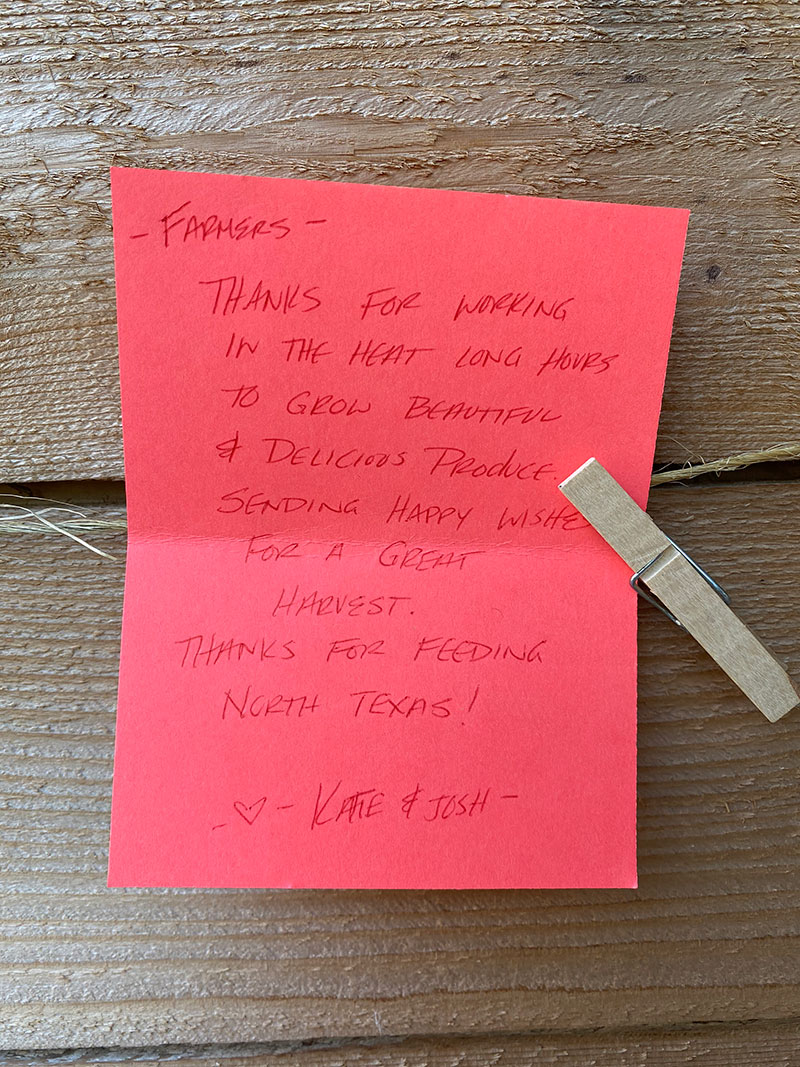 - FARMERS -
THANKS FOR WORKING
IN THE HEAT LONG HOURS
TO GROW BEAUTIFUL
& DELICIOUS PRODUCE.
SENDING HAPPY WISHE
FOR A GREAT
HARVEST.
THANKS FOR FEEDING
NORTH TEXAS!
- ♡ - KATIE & JOSH -